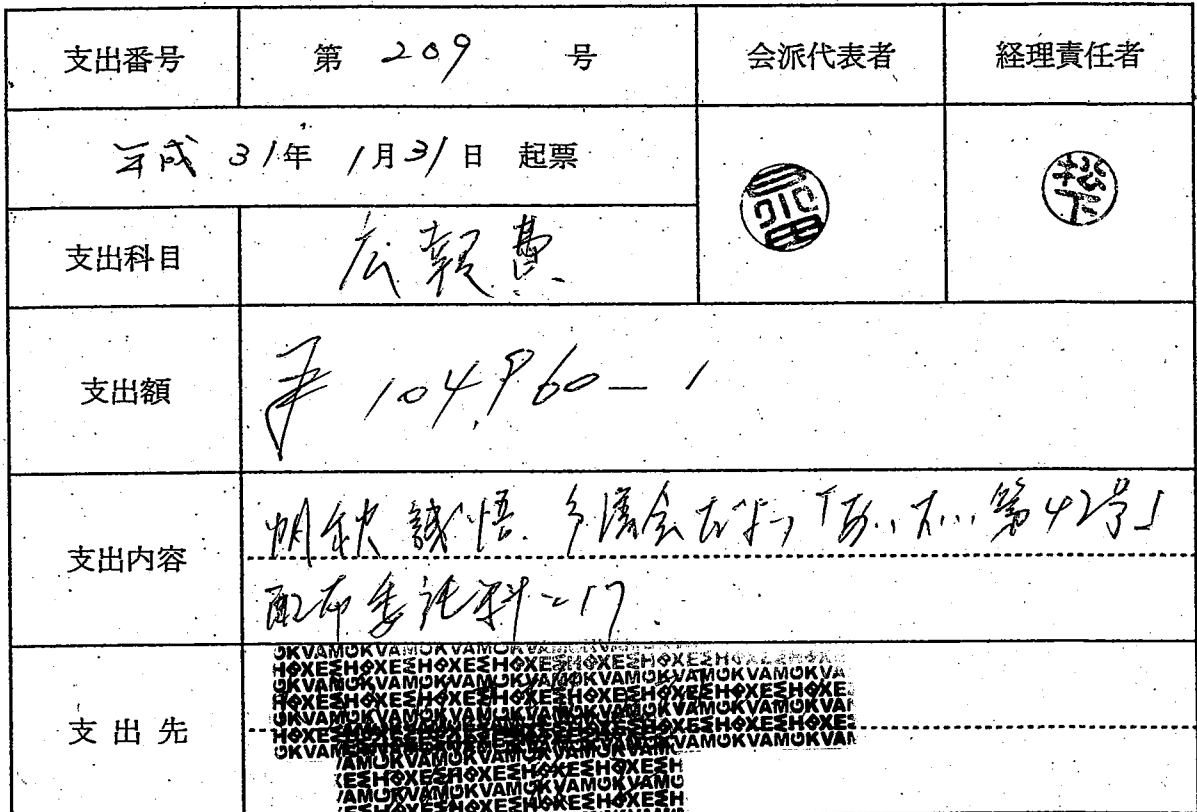 支出番号 第 209 号 会派代表者 経理責任者
平成 31年 1月31日 起票
松下
支出科目 広報費
支出額 ¥104,960-
支出内容 誠悟 議会だより「あい 第42号」
配布委託料
支出先